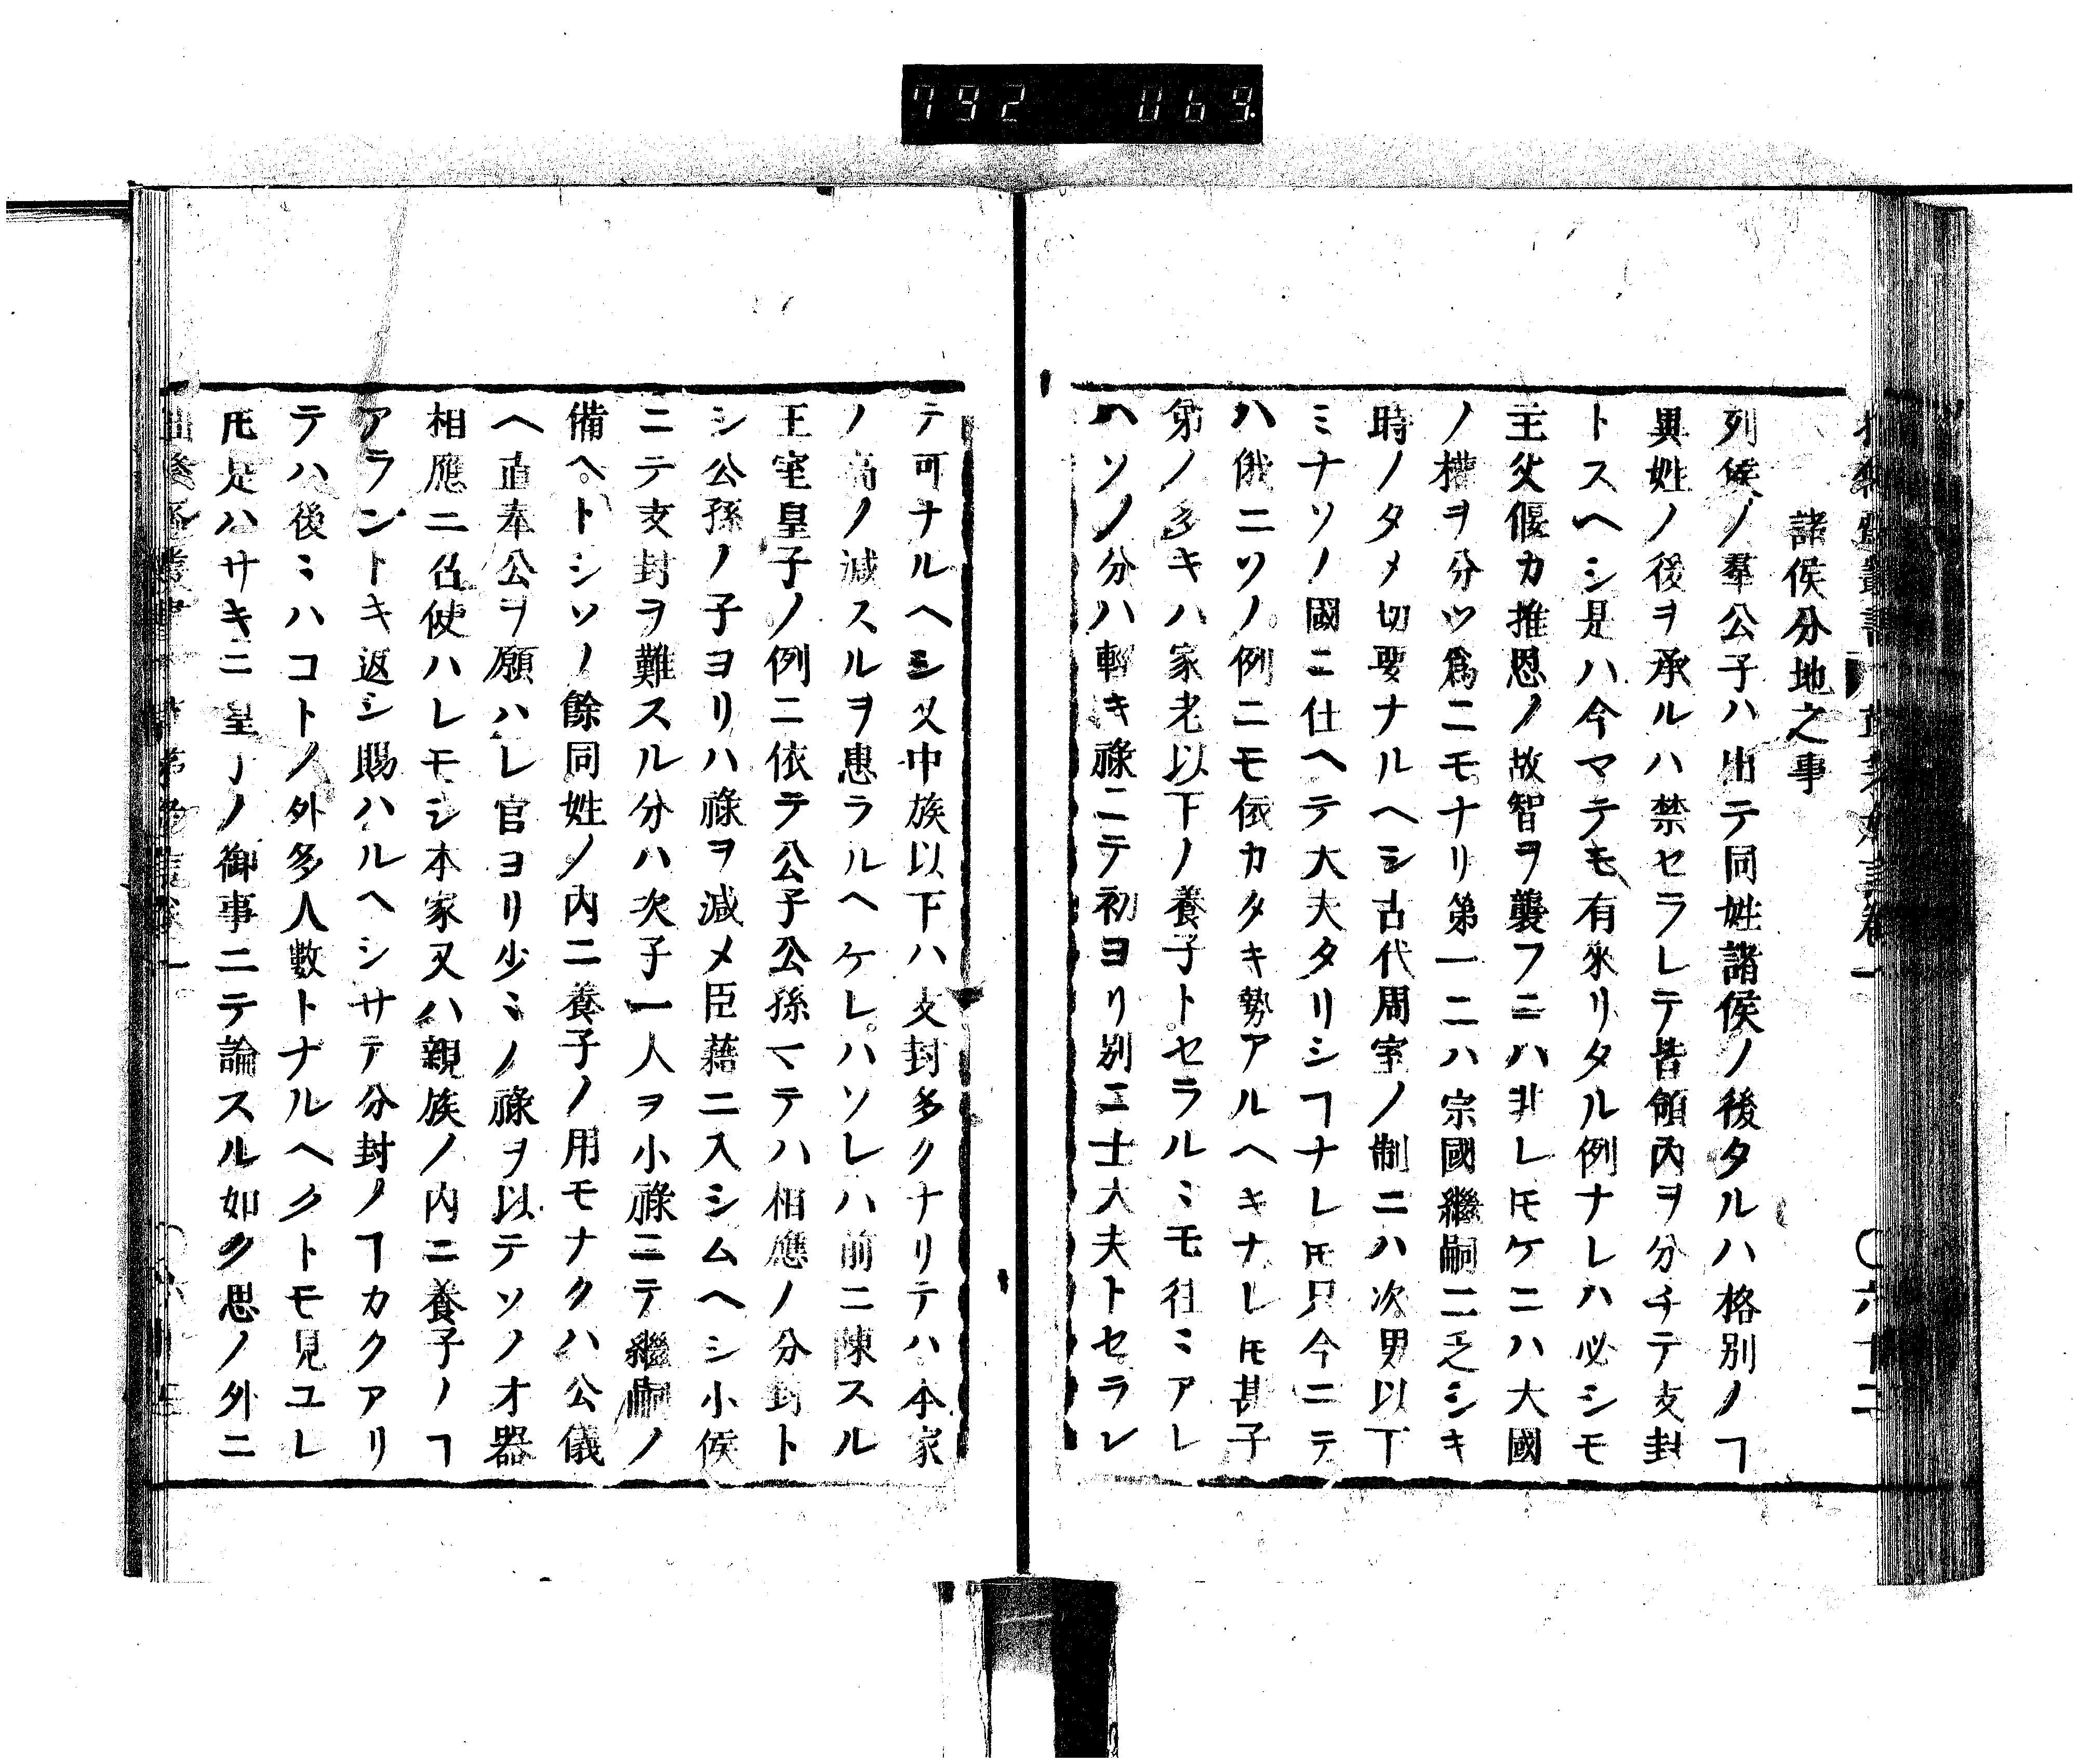 792 069
諸侯分地之事
列侯ノ羣公子ハ出テ同姓諸侯ノ後タルハ格別ノヿ
異姓ノ後ヲ承ルハ禁セラレテ皆領内ヲ分チテ支封
トスヘシ是ハ今マテモ有來リタル例ナレハ必シモ
主父偃カ推恩ノ故智ヲ襲フニハ非レ𪜈ケニハ大國
ノ權ヲ分ツ爲ニモナリ第一ニハ宗國繼嗣ニ乏シキ
時ノタメ切要ナルヘシ古代周室ノ制ニハ次男以下
ミナソノ國ニ仕ヘテ大夫タリシヿナレ𪜈只今ニテ
ハ俄ニソノ例ニモ依カタキ勢アルヘキナレ𪜈甚子
弟ノ多キハ家老以下ノ養子トセラルミモ往ミアレ
ハソノ分ハ輕キ祿ニテ初ヨリ別ニ士大夫トセラレ
テ可ナルヘシ又中族以下ハ支封多クナリテハ本家
ノ高ノ減スルヲ患ラルヘケレハソレハ前ニ陳スル
王室皇子ノ例ニ依テ公子公孫マテハ相應ノ分封ト
シ公孫ノ子ヨリハ祿ヲ減メ臣藉ニ入シムヘシ小侯
ニテ支封ヲ難スル分ハ次子一人ヲ小祿ニテ繼嗣ノ
備ヘトシソノ餘同姓ノ内ニ養子ノ用モナクハ公儀
ヘ直奉公ヲ願ハレ官ヨリ少ミノ祿ヲ以テソノ才器
相應ニ召使ハレモシ本家又ハ親族ノ内ニ養子ノヿ
アラントキ返シ賜ハルヘシサテ分封ノヿカクアリ
テハ後ミハコトノ外多人數トナルヘクトモ見ユレ
𪜈是ハサキニ皇子ノ御事ニテ論スル如ク思ノ外ニ